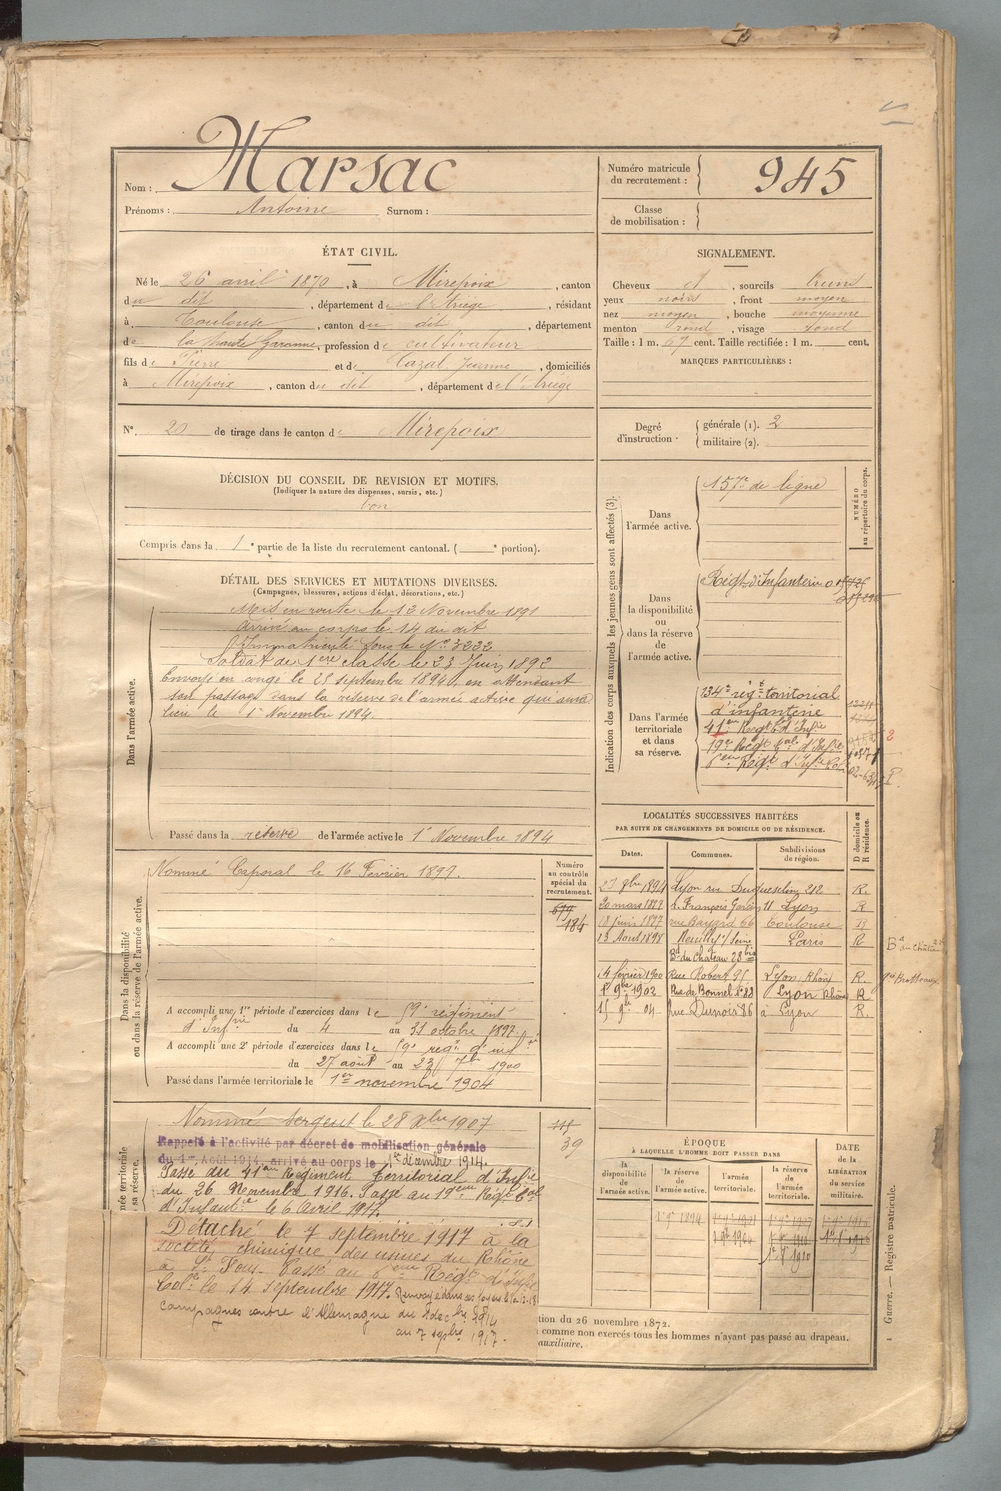 Nom : Marsac
Prénoms : Antoine Surnom :
Numéro matricule du recrutement : 945
Classe de mobilisation :
ÉTAT CIVIL.
Né le 26 avril 1870, à Mirepoix, canton
du dit, département de l'Ariège, résidant
à Toulouse, canton du dit, département
de la haute Garonne, profession de cultivateur
fils de Pierre et de Cazal Jeanne, domiciliés
à Mirepoix, canton du dit, département de l'Ariège
SIGNALEMENT.
Cheveux et, sourcils bruns
yeux noirs, front moyen
nez moyen, bouche moyenne
menton rond, visage rond
Taille : 1 m. 67 cent. Taille rectifiée : 1 m. cent.
MARQUES PARTICULIÈRES :
N° 20 de tirage dans le canton de Mirepoix
Degré d'instruction : générale (1). 2
militaire (2).
DÉCISION DU CONSEIL DE REVISION ET MOTIFS.
(Indiquer la nature des dispenses, sursis, etc.)
bon
Compris dans la 1e partie de la liste du recrutement cantonal. ( e portion).
DÉTAIL DES SERVICES ET MUTATIONS DIVERSES.
(Campagnes, blessures, actions d'éclat, décorations, etc.)
Dans l'armée active.
Mis en route le 13 Novembre 1891
Arrivé au corps le 14 du dit
Immatriculé sous le N° 3232
Soldat de 1ère classe le 23 Juin 1892
Envoyé en congé le 25 septembre 1894, en attendant
son passage dans la réserve de l'armée active qui aura
lieu le 1er Novembre 1894.
Passé dans la réserve de l'armée active le 1er Novembre 1894
Dans la disponibilité ou dans la réserve de l'armée active.
Numéro au contrôle spécial du recrutement.
Nommé Caporal le 16 Février 1897.
679
184
A accompli une 1re période d'exercices dans le régiment
d'Infrie du 4 au 31 octobre 1897
A accompli une 2e période d'exercices dans le régt d'infrie
du 27 août au 23 7bre 1900
Passé dans l'armée territoriale le 1er novembre 1904
ée territoriale
sa réserve.
Nommé Sergent le 28 Xbre 1907
39
Rappelé à l'activité par décret de mobilisation générale
du 1er Août 1914, arrivé au corps le 1er décembre 1914.
Passé du 41ème Régiment Territorial d'Infie
du 26 Novembre 1916. Passé au 19ème Régt Col
d'Infanterie le 6 Avril 1917.
Détaché le 7 septembre 1917 à la
société chimique des usines du Rhône
à St Fons. Passé au 6ème Régt d'Infie
Colle le 14 septembre 1917.
Campagnes contre l'Allemagne du 1 décbre 1914
au 7 sepbre 1917.
Indication des corps auxquels les jeunes gens sont affectés (3).
NUMÉRO au répertoire du corps.
Dans l'armée active. 157e de ligne
Dans la disponibilité ou dans la réserve de l'armée active. Régt d'Infanterie
Dans l'armée territoriale et dans sa réserve.
134e régt territorial
d'infanterie
41ème Régt t. d'Infie
19e Régt Col. d'Infie
6ème Régt d'Infie Cole
LOCALITÉS SUCCESSIVES HABITÉES
PAR SUITE DE CHANGEMENTS DE DOMICILE OU DE RÉSIDENCE.
Dates. Communes. Subdivisions de région. D domicile ou R résidence.
27 9bre 1894 Lyon rue Duguesclin 212 R.
20 mars 1897 r. François Garcin 11 Lyon R
18 juin 1897 rue Bayard 66 Toulouse R
13 Août 1898 Neuilly s/ Seine Paris R
Bd du Château 23 bis
14 février 1900 Rue Robert 95 Lyon, Rhône R.
1902 Rue de Bonnel N° 88 Lyon Rhône R
15 9bre 04 rue Dunoir 86 à Lyon R.
ÉPOQUE
À LAQUELLE L'HOMME DOIT PASSER DANS
la disponibilité de l'armée active. la réserve de l'armée active. l'armée territoriale. la réserve de l'armée territoriale.
DATE de la LIBÉRATION du service militaire.
tion du 26 novembre 1872.
comme non exercés tous les hommes n'ayant pas passé au drapeau.
auxiliaire.
1 Guerre. — Registre matricule.